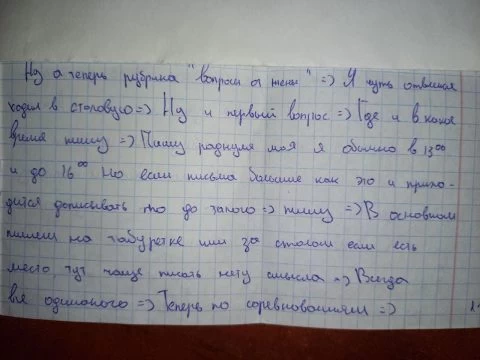 Ну а теперь рубрика "вопросы от жены" => Я чуть отвлекся
ходил в столовую => Ну и первый вопрос => Где и в какое
время пишу => Пишу роднуля моя я обычно в 13⁰⁰
и до 16⁰⁰ Но если письма большие как это и прихо-
дится дописывать то до такого => пишу => В основном
пишем на табуретке или за столом если есть
место тут чаще писать нету смысла => Всегда
все одинаково => Теперь по соревнованиям =>